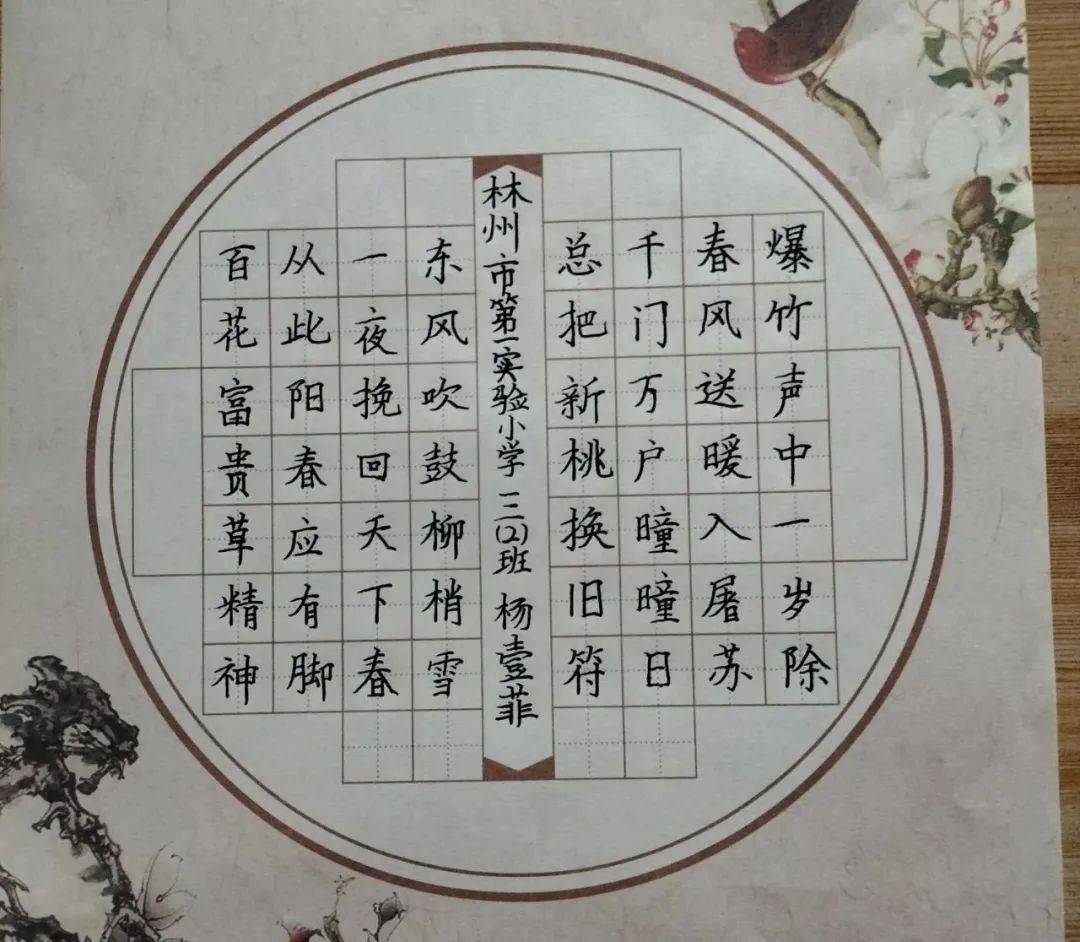 爆竹声中一岁除
春风送暖入屠苏
千门万户曈曈日
总把新桃换旧符
林州市第一实验小学 三(2)班 杨壹菲
东风吹鼓柳梢雪
一夜挽回天下春
从此阳春应有脚
百花富贵草精神